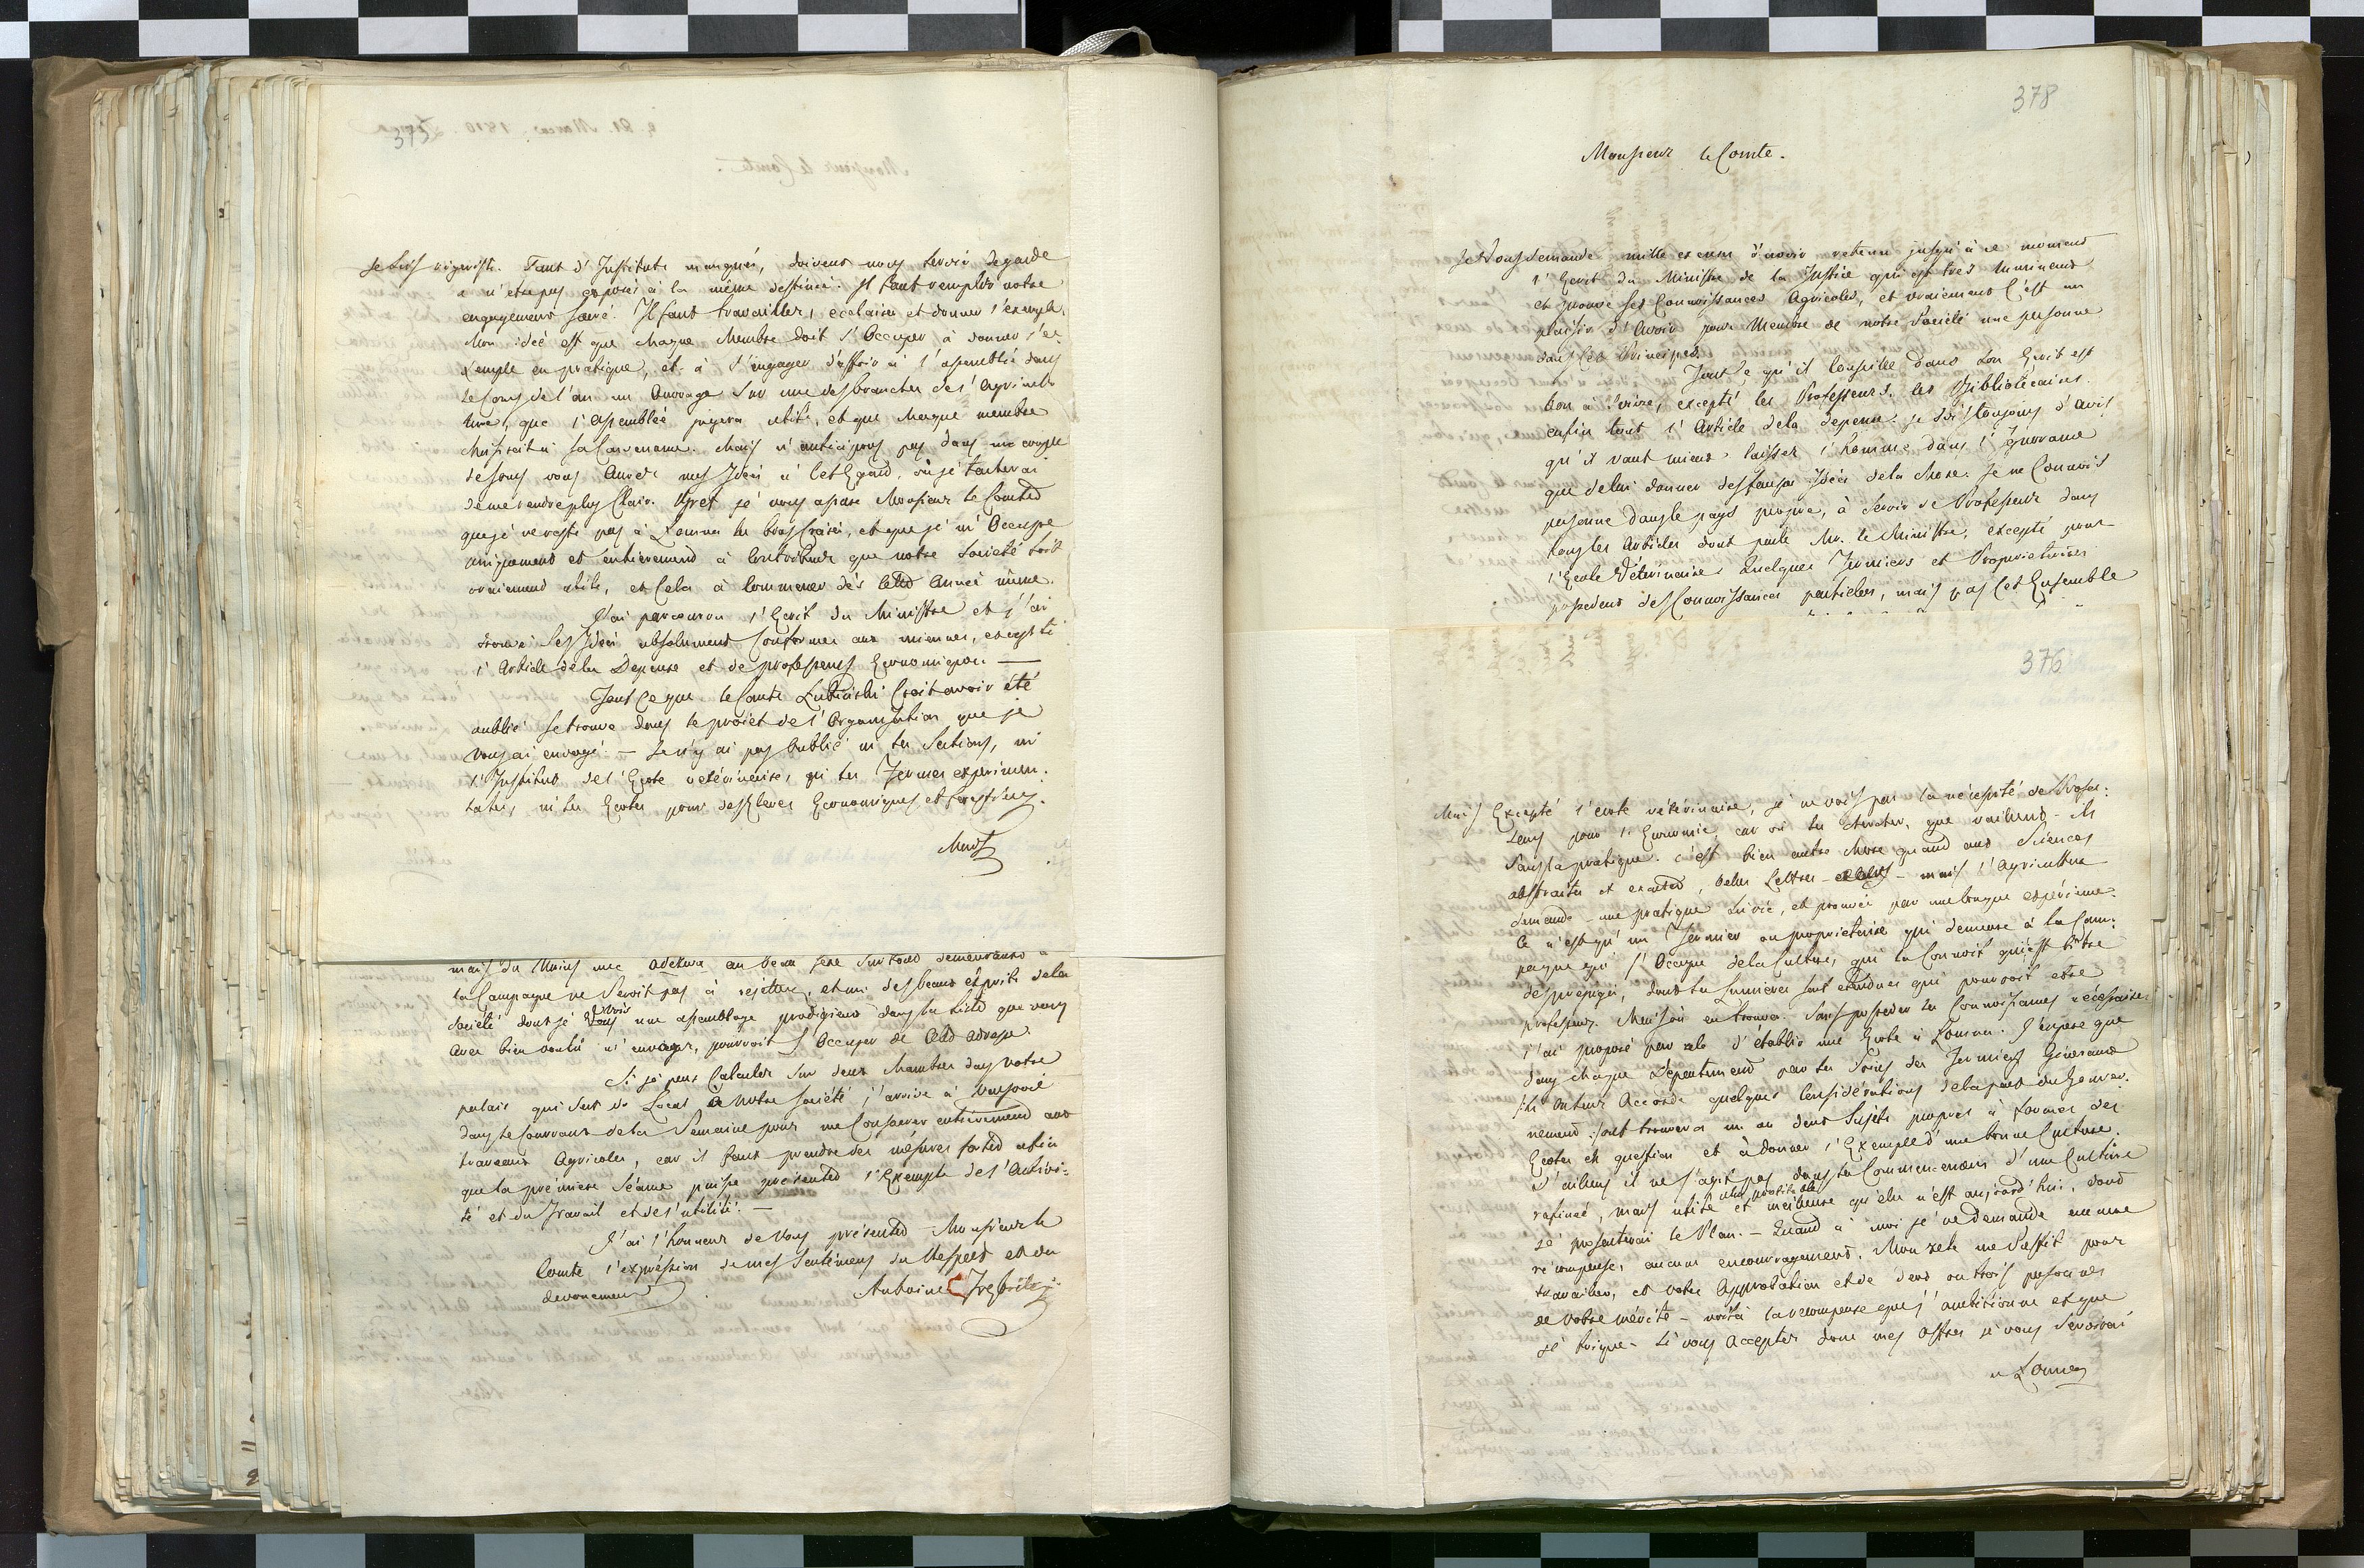 373
je suis rigoriste. Tant d'Instituts manqués, doivent nous servir de garde
a n'etre pas exposés à la même destinée. Il faut remplir notre
engagement sacré. Il faut travailler, eclairer et donner l'exemple.
Mon ideé est que chaque Membre doit s'Occuper à donner l'e-
xemple en pratique, et à s'engager d'offrir à l'assemblée dans
le cours de l'an un Ouvrage sur une des branches de l'Agricul-
ture, que l'assembleé jugera utile, et que chaque membre
choisirait à sa Convenance. Mais n'anticipons pas dans une couple
de jours vous aurez mes Ideés à cet Egard, où je tacherai
de me rendre plus Clair. Bref je vous assure Monsieur le Comte
que je ne reste pas à Lomna les bras Croisés, et que je m'Occupe
uniquement et entierement à Contribuer que notre Societé soit
vraiement utile, et Cela à Commencer dès cette Année même.
J'ai parcouru l'Ecrit du Ministre et j'ai
trouvé ses Ideés absolument Conformes aux miennes, excepté
l'Article de la Depense et de professeurs Economiques —
Tout Ce que le Comte Lubieński Croit avoir été
oublié se trouve dans le projet de l'Organisation que je
vous ai envoyé. — Je n'y ai pas Oublié ni les Sections, ni
l'Institut de l'Ecole vetérinaire, ni les Fermes experimen-
tales, ni les Ecoles pour des Eleves Economiques et forestiers.
Mais
mais du Moins une
la Campagne ne Seroit pas à rejetter, et un des beaux esprits de la
Societé dont je vois une assemblage prodigieux dans la liste que vous
avez bien voulu m'envoyer, pourroit s'Occuper de Cette adresse.
Si je peux Calculer sur deux Chambres dans votre
palais qui sert de Local à Notre Societé j'arrive à Varsovie
dans le courrant de la Semaine pour me Consacrer entièrement aux
travaux Agricoles, car il faut prendre des mésures fortes afin
que la première Séance puisse présenter l'Exemple de l'Activi-
té et du Travail et de l'utilité. —
J'ai l'honneur de Vous présenter Monsieur le
Comte l'expréssion de mes Sentimens du Respect et du
devouement
Antoine Trębicki
378
Monsieur le Comte.
Je Vous demande mille excuses d'avoir retenu jusqu'à ce moment
l'Ecrit du Ministre de la Justice qui est tres lumineux
et prouve ses Connoissances Agricoles, et vraiement C'est un
plaisir d'Avoir pour Membre de notre Societé une personne
dans ces Principes.
Tout ce qu'il Conseille dans son Ecrit est
bon à suivre, excepté les Professeurs, les Bibliotécaires.
enfin tout l'Article de la depense. je suis toujours d'avis
qu'il vaut mieux laisser l'homme dans l'Ignorance
que de lui donner des fausses Ideés de la Chose. Je ne Connois
personne dans le pays propre, à Servir de Professeur dans
tous les Articles dont parle Mr. le Ministre, excepté pour
l'Ecole Véterinaire. Quelques Fermiers et Proprietaires
possedent des Connoissances partielles, mais pas cet Ensemble
376
Mais Excepté l'ecole véterinaire, je ne vois pas la nécessité de Profes-
seurs pour l'Economie, car où les chercher, que vaillent-ils
sans la pratique. C'est bien autre chose quand aux Sciences
abstraites et exactes, belles Lettres — mais l'Agriculture
demande une pratique suivie, et prouvée par une longue expérience.
Ce n'est qu'un Fermier ou proprietaire qui demeure à la Cam-
pagne qui s'Occupe de la Culture, qui la Connoit qui est libre
des prejugés, dont les lumieres sont etendues qui pourroit etre
professeur. Mais où en trouver. Sans posseder les Connoissances nécessaires
j'ai proposé par zele d'établir une Ecole à Lomna. J'espere que
dans chaque Departement par les soins des Fermiers Généraux
/: si on leur Accorde quelques Considérations de la part du Gouver-
nement :/ ont trouvera un ou deux Sujets propres à former des
Ecoles en question et à donner l'Exemple d'une bonne Culture.
D'ailleurs il ne s'agit pas dans les Commencemens d'une Culture
rafineé, mais utile et meilleure qu'elle n'est aujourd'hui, dont
plus profitable
je présenterai le Plan. — Quand à moi je ne demande aucune
récompense, aucun encouragement. Mon zele me Suffit pour
travailler, et votre Approbation et de deux ou trois personnes
de votre mérite — voilà la recompense que j'ambitionne et que
je brigue. Si vous Acceptez donc mes offres je vous Servirai
a Lomna